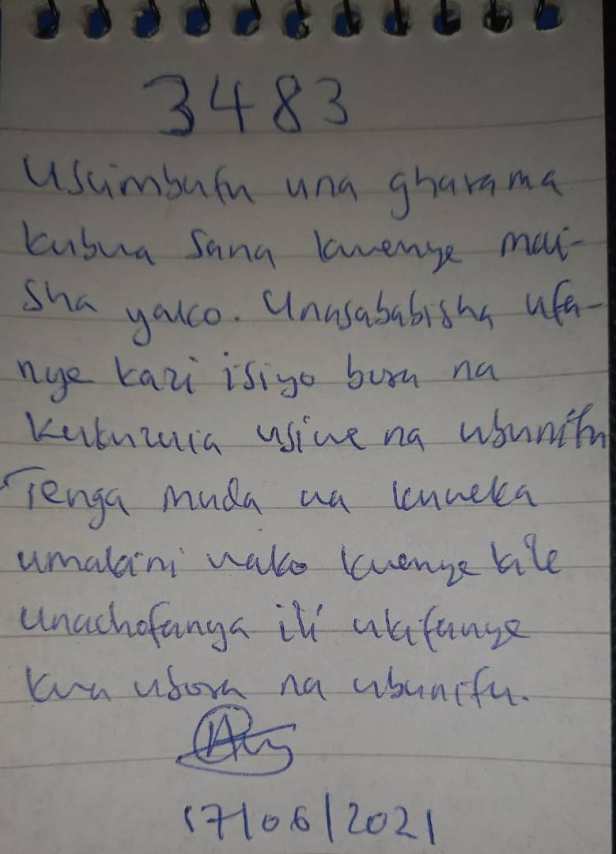 3483
Usumbufu una gharama
kubwa sana kwenye mai-
sha yako. Unasababisha ufa-
nye kazi isiyo bora na
kukuzuia usiwe na ubunifu
Tenga muda wa kuweka
umakini wako kwenye kile
unachofanya ili ukifanye
kwa ubora na ubunifu.
17/06/2021